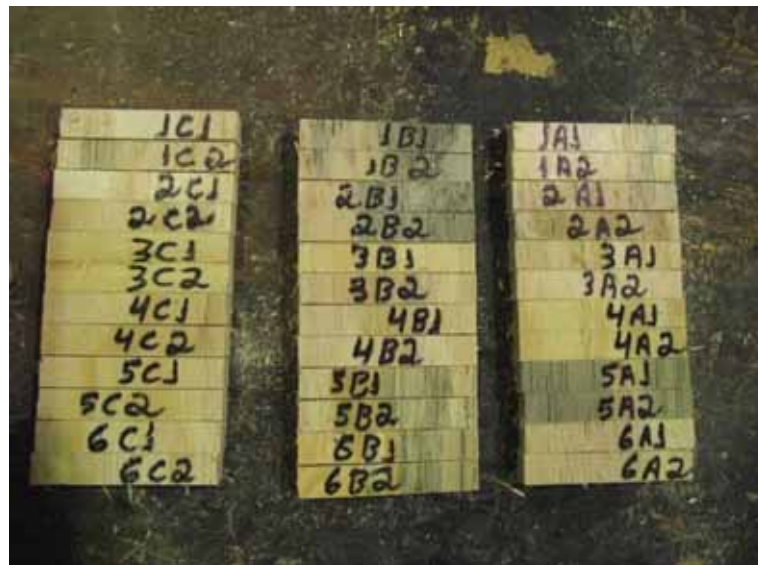 1C1
1C2
2C1
2C2
3C1
3C2
4C1
4C2
5C1
5C2
6C1
6C2
1B1
1B2
2B1
2B2
3B1
3B2
4B1
4B2
5B1
5B2
6B1
6B2
1A1
1A2
2A1
2A2
3A1
3A2
4A1
4A2
5A1
5A2
6A1
6A2